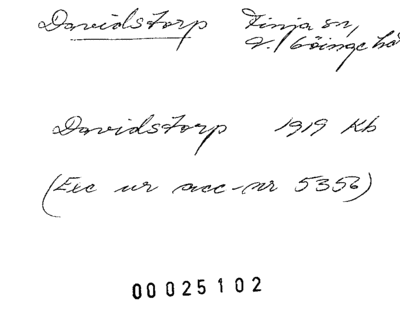 Davidstorp Finja sn,
V. Göinge hd
Davidstorp 1919 Kb
(Exc ur acc-nr 5356)
00025102